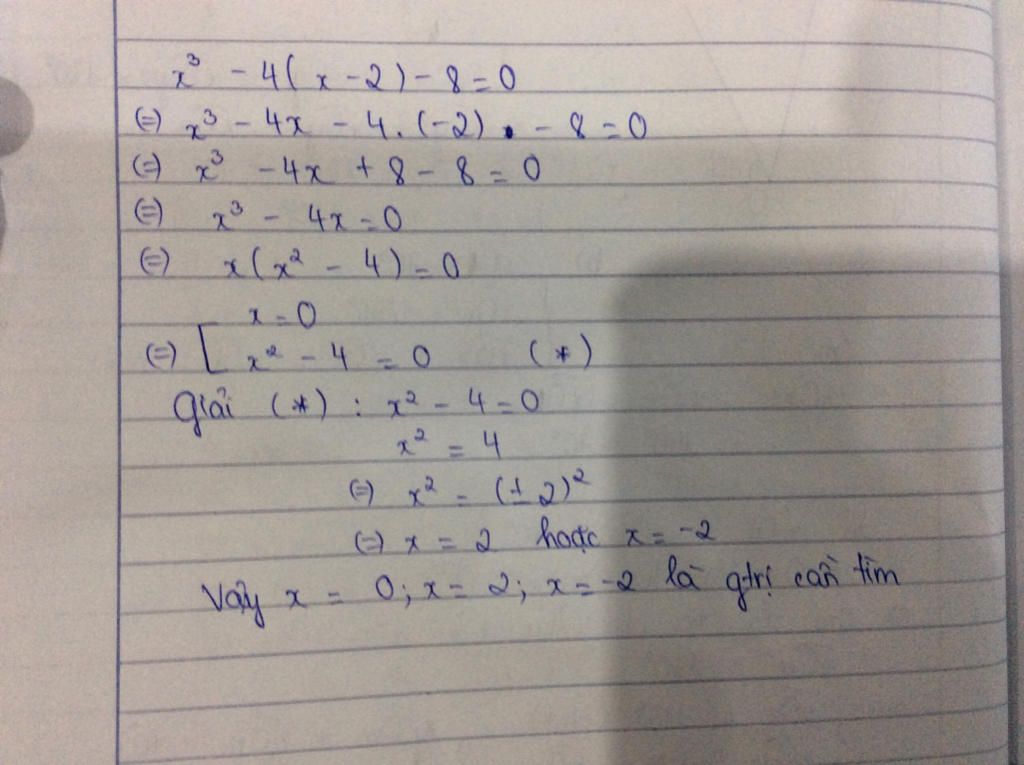 x³ - 4(x - 2) - 8 = 0
(=) x³ - 4x - 4.(-2) - 8 = 0
(=) x³ - 4x + 8 - 8 = 0
(=) x³ - 4x = 0
(=) x(x² - 4) = 0
x = 0
(=) [ x² - 4 = 0 (*)
Giải (*) : x² - 4 = 0
x² = 4
(=) x² = (± 2)²
(=) x = 2 hoặc x = -2
Vậy x = 0; x = 2; x = -2 là gtrị cần tìm